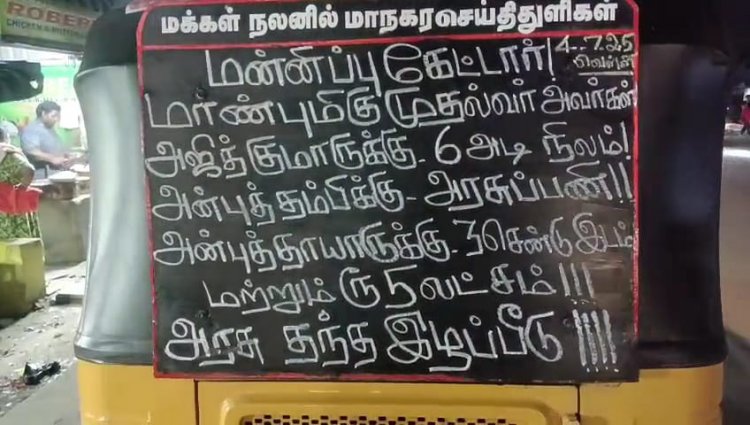 ROBER
CHICKEN &
மக்கள் நலனில் மாநகரசெய்திதுளிகள்
மன்னிப்பு கேட்டார்! 4-7-25
வெள்ளி
மாண்புமிகு முதல்வர் அவர்கள்
அஜித்குமாருக்கு - 6 அடி நிலம்!
அன்புத்தம்பிக்கு - அரசுப்பணி!!
அன்புத்தாயாருக்கு - 3 செண்டு இடம்
மற்றும் ரூ 5 லட்சம் !!!
அரசு தந்த இழப்பீடு !!!!